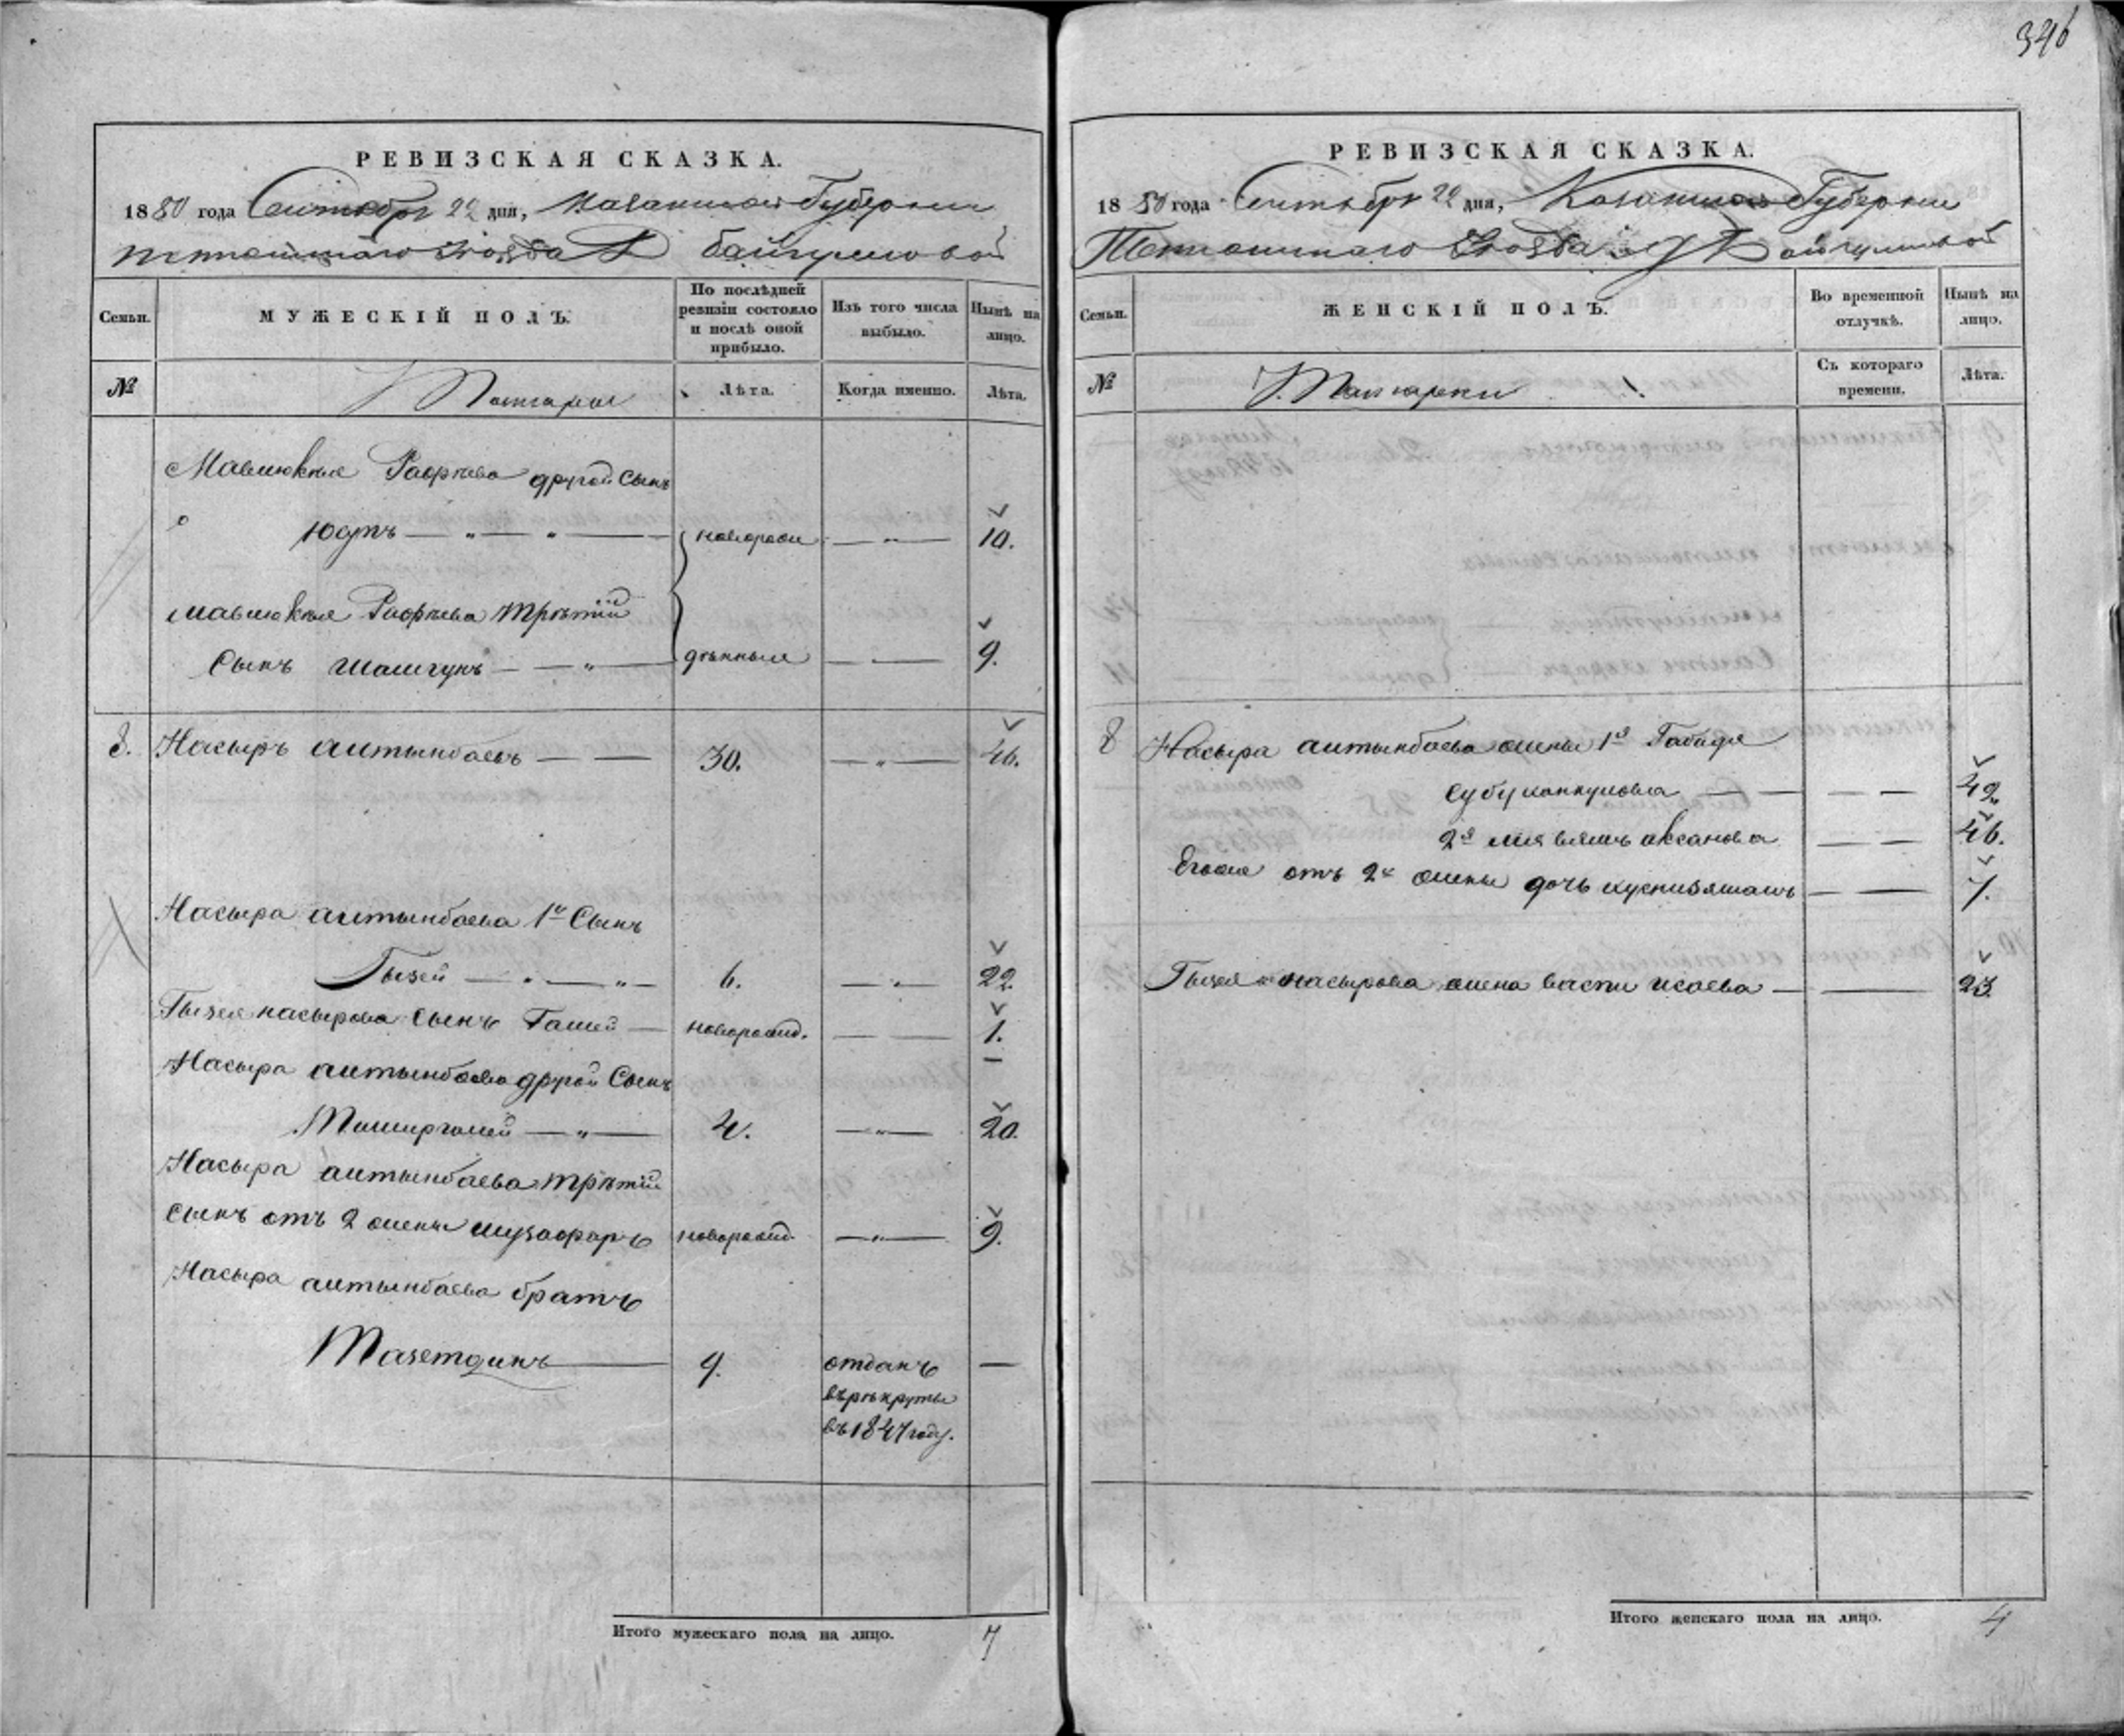 346
РЕВИЗСКАЯ СКАЗКА.
1850 года Сентября 22 дня, Казанской Губернии
Тетюшскаго Уезда Д байгуловой
Семьи.
МУЖЕСКІЙ ПОЛЪ.
По послѣдней ревизіи состояло и послѣ оной прибыло.
Изъ того числа выбыло.
Нынѣ на лицо.
№
Лѣта.
Когда именно.
Лѣта.
другой Сынъ
Юсупъ — „ — „ — новорож — „ — 10.
третій
Сынъ — „ — денныя — — 9.
8. Насыръ алтынбаевъ — — 30. — „ — 46.
Насыра алтынбаева 1й Сынъ
Гызей — „ — „ — 6. — „ — 22
Гызея насырова Сынъ — новорожд. — — 1.
Насыра алтынбаева другой Сынъ —
— „ — 4. — „ — 20.
Насыра алтынбаева третій
Сынъ отъ 2 жены музафаръ новорожд. — „ — 9.
Насыра алтынбаева братъ
Тазетдинъ — 9. отданъ —
въ рекруты
въ 1847 году.
Итого мужескаго пола на лицо. 7
РЕВИЗСКАЯ СКАЗКА.
1850 года Сентября 22 дня, Казанской Губернии
Тетюшскаго Уезда Д Байгуловой
Семьи.
ЖЕНСКІЙ ПОЛЪ.
Во временной отлучкѣ.
Нынѣ на лицо.
№
Съ котораго времени.
Лѣта.
8 Насыра алтынбаева жены 1я
— — — — 42
2я аксанова — — 46.
Егоже отъ 2й жены дочь — — 7.
Гызея насырова жена исаева — — 23.
Итого женскаго пола на лицо. 4